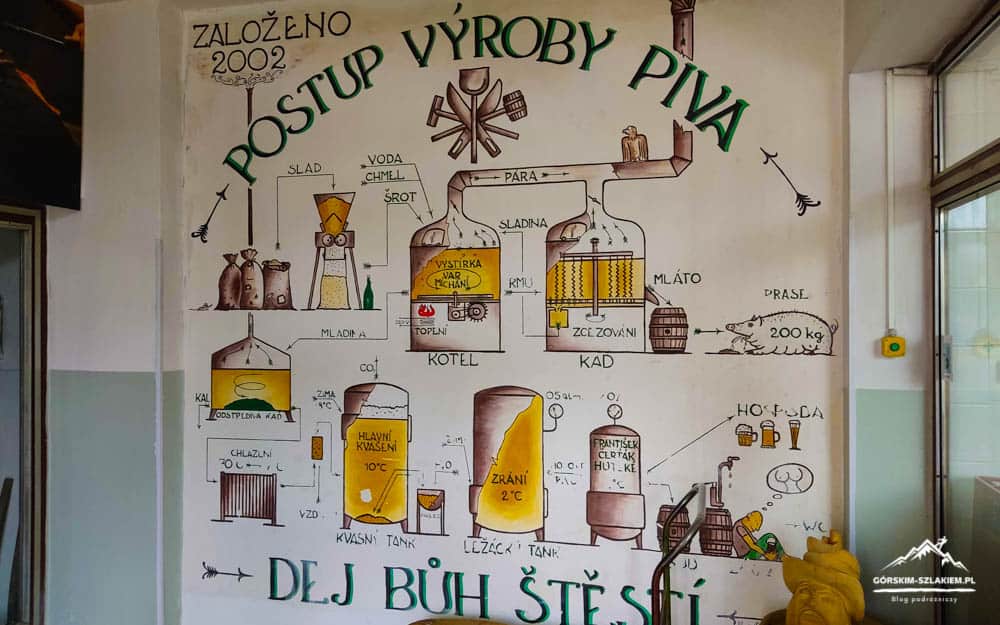 ZALOŽENO
2002
POSTUP VÝROBY PIVA
SLAD
VODA
CHMEL
ŠROT
PÁRA
SLADINA
VYSTÍRKA
VAR
MÍCHÁNÍ
RMUT
MLÁTO
PRASE
200 kg
TOPENÍ
ZCEZOVÁNÍ
KOTEL
KÁĎ
MLADINA
KAL
ODSTŘEDIVÁ KÁĎ
CO₂
ZIMA
4°C
CHLAZENÍ
HLAVNÍ
KVAŠENÍ
10°C
ZRÁNÍ
2°C
FRANTIŠEK
ČERŤÁK
°C
HOSPODA
VZD
KVASNÝ TANK
LEŽÁCKÝ TANK
WC
DEJ BŮH ŠTĚSTÍ
GÓRSKIM-SZLAKIEM.PL
Blog podróżniczy